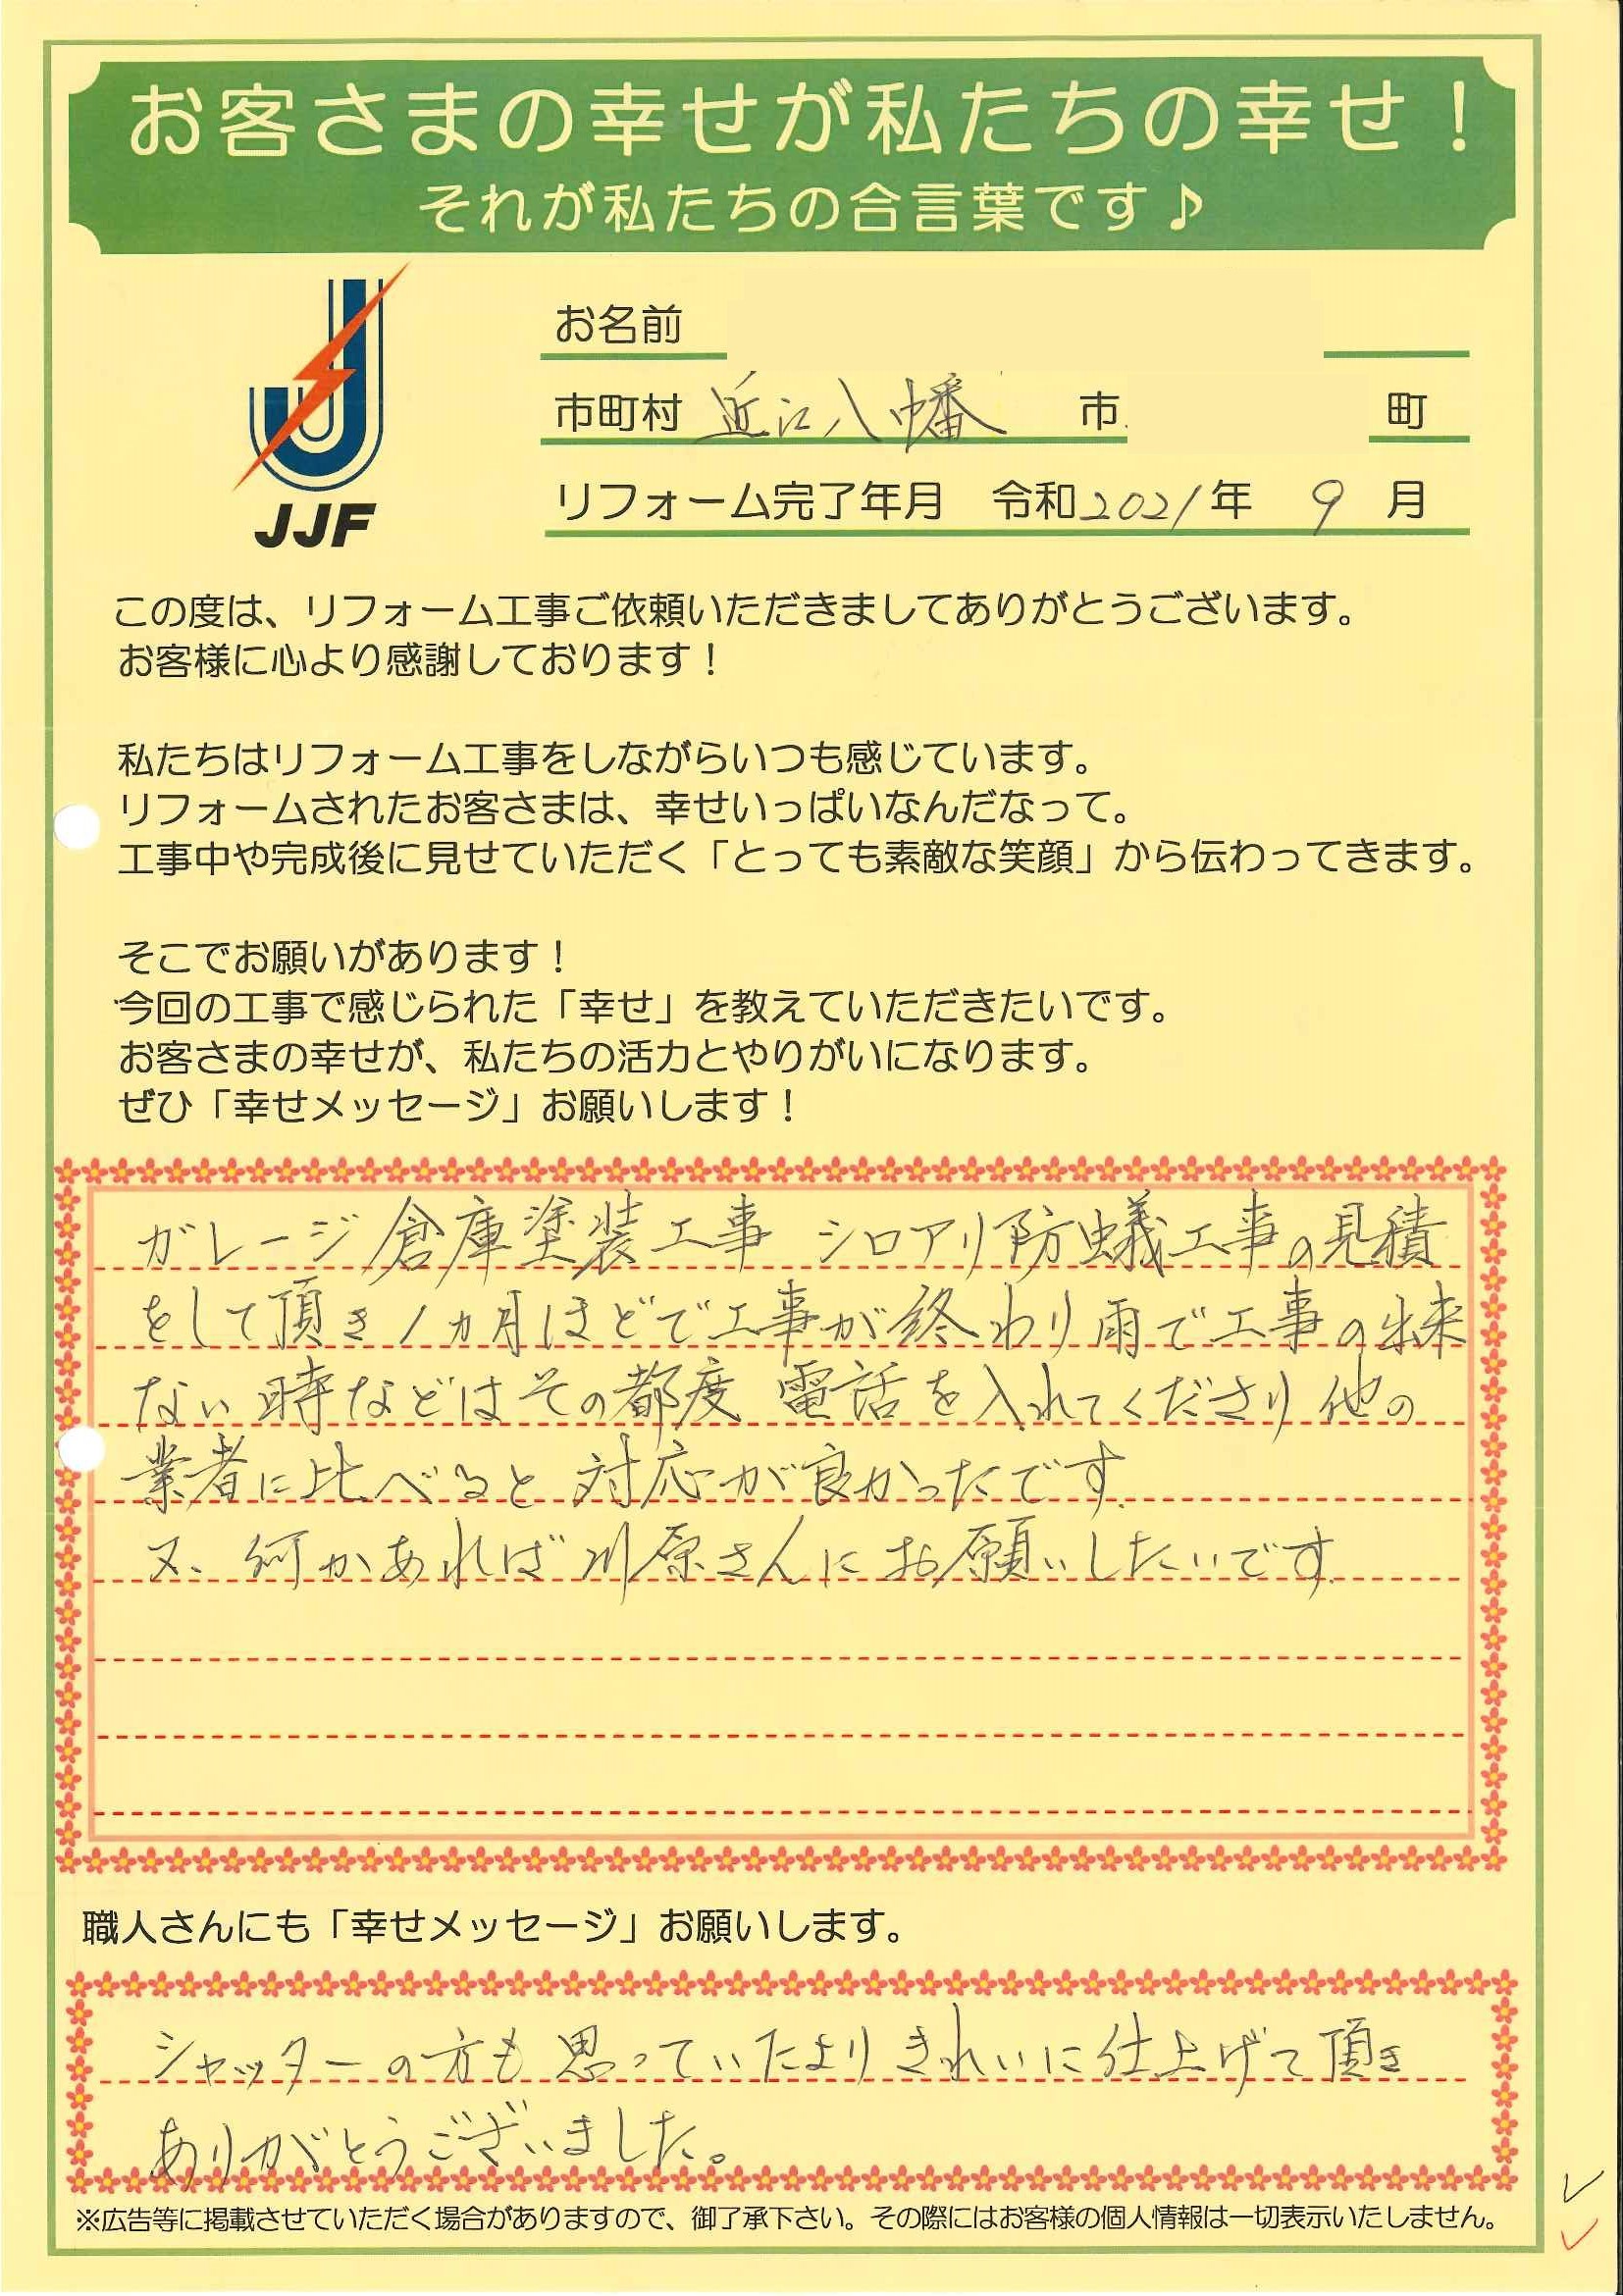 お客さまの幸せが私たちの幸せ！
それが私たちの合言葉です♪
JJF
お名前
市町村 近江八幡 市 町
リフォーム完了年月 令和2021年 9月
この度は、リフォーム工事ご依頼いただきましてありがとうございます。
お客様に心より感謝しております！
私たちはリフォーム工事をしながらいつも感じています。
リフォームされたお客さまは、幸せいっぱいなんだなって。
工事中や完成後に見せていただく「とっても素敵な笑顔」から伝わってきます。
そこでお願いがあります！
今回の工事で感じられた「幸せ」を教えていただきたいです。
お客さまの幸せが、私たちの活力とやりがいになります。
ぜひ「幸せメッセージ」お願いします！
ガレージ倉庫塗装工事 シロアリ予防蟻工事の見積
をして頂き1ヵ月ほどで工事が終わり雨で工事の出来
ない時などはその都度 電話を入れてくださり他の
業者に比べると対応が良かったです.
又、何かあれば川原さんにお願いしたいです.
職人さんにも「幸せメッセージ」お願いします。
シャッターの方も思っていたよりきれいに仕上げて頂き
ありがとうございました。
※広告等に掲載させていただく場合がありますので、御了承下さい。その際にはお客様の個人情報は一切表示いたしません。